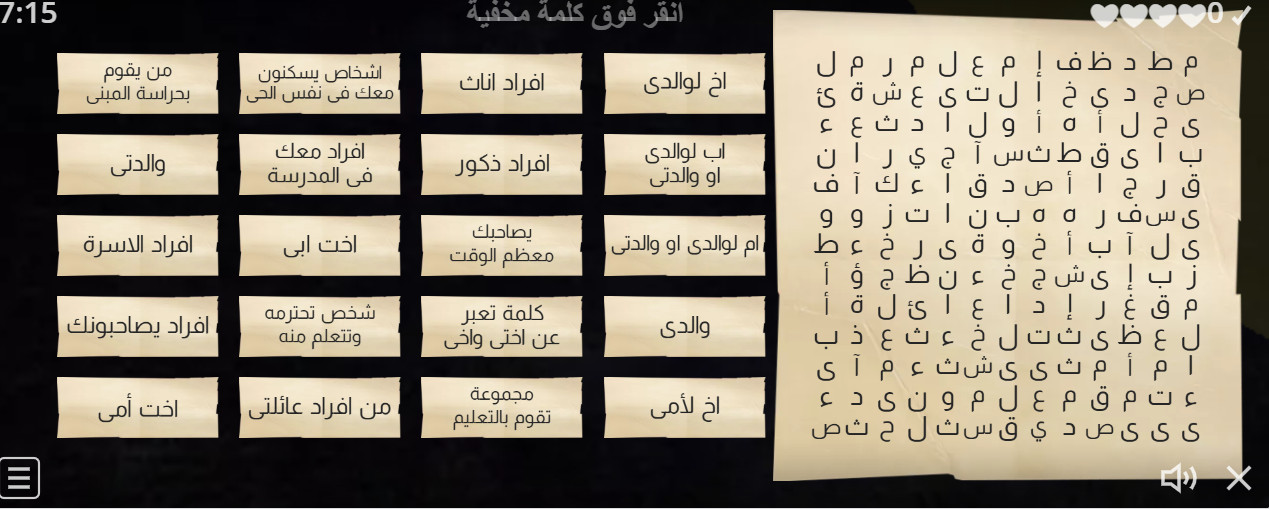 7:15
انقر فوق كلمة مخفية
0
اخ لوالدى
افراد اناث
اشخاص يسكنون
معك فى نفس الحى
من يقوم
بحراسة المبنى
اب لوالدى
او والدتى
افراد ذكور
افراد معك
فى المدرسة
والدتى
ام لوالدى او والدتى
يصاحبك
معظم الوقت
اخت ابى
افراد الاسرة
والدى
كلمة تعبر
عن اختى واخى
شخص تحترمه
وتتعلم منه
افراد يصاحبونك
اخ لأمى
مجموعة
تقوم بالتعليم
من افراد عائلتى
اخت أمى
م ط د ظ ف إ م ع ل م ر م ل
ص ج د ى خ ا ل ت ى ع ش ة ئ
ى ح ل أ ه أ و ل ا د ث ع ء
ب ا ى ق ط ث س آ ج ي ر ا ن
ق ر ج ا أ ص د ق ا ء ك آ ف
ى س ف ر ه ه ب ن ا ت ز و و
ى ل آ ب أ خ و ة ى ر خ ء ط
ز ب إ ى ش ج خ ء ن ظ ج ؤ أ
م ق غ ر إ د ا ع ا ئ ل ة أ
ل ع ظ ى ث ت ل خ ء ث ع ذ ب
ا م أ م ث ى ى ش ث ء م آ ى
ء ت م ق م ع ل م و ن ى د ء
ى ى ى ص د ي ق س ث ل ح ث ص